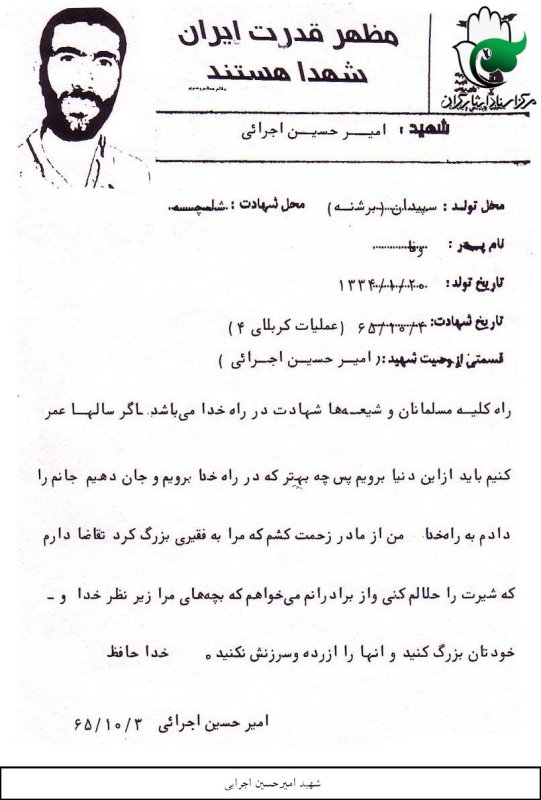 مظهر قدرت ایران
شهدا هستند
مرکز اسناد ایثارگران
شهید : امیر حسین اجرائی
محل تولد : سپیدان (برشنه) محل شهادت : شلمچه
نام پدر :
تاریخ تولد : ۱۳۳۴/۱/۲۰
تاریخ شهادت: ۶۵/۱۰/۴ (عملیات کربلای ۴)
قسمتی از وصیت شهید : ( امیر حسین اجرائی )
راه کلیه مسلمانان و شیعه‌ها شهادت در راه خدا می‌باشد. اگر سالها عمر
کنیم باید ازاین دنیا برویم پس چه بهتر که در راه خدا برویم و جان دهیم جانم را
دادم به راه خدا من از مادر زحمت کشم که مرا به فقیری بزرگ کرد تقاضا دارم
که شیرت را حلالم کنی واز برادرانم می‌خواهم که بچه‌های مرا زیر نظر خدا و -
خودتان بزرگ کنید و انها را ازرده وسرزنش نکنید . خدا حافظ
امیر حسین اجرائی ۶۵/۱۰/۳
شهید امیرحسین اجرایی